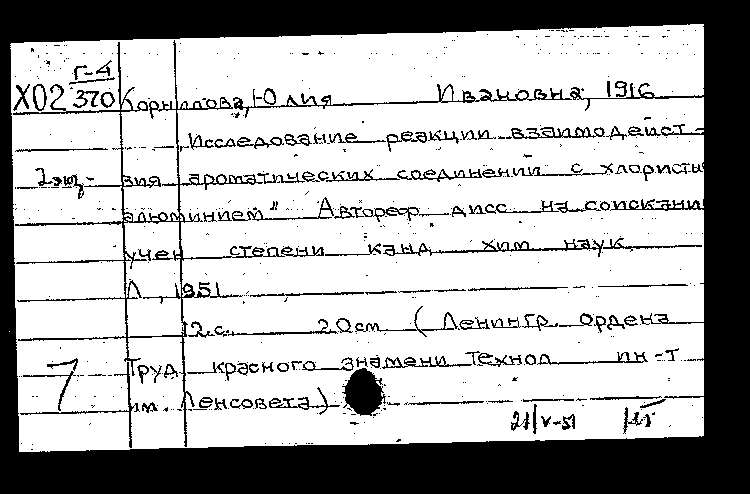 Г-4
Х02 370 Корнилова, Юлия Ивановна, 1916
"Исследование реакции взаимодейст-
2 экз- вия ароматических соединений с хлористы
алюминием" Автореф дисс на соискани
учен степени канд хим наук
Л, 1951
12 с. 20 см (Ленингр. ордена
7 Труд красного знамени технол ин-т
им. Ленсовета)
21/V-51